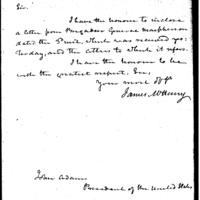 Sir.
I have the honour to inclose
a letter from Brigadier General Macpherson
dated the 5 inst, which was received yes-
terday, and the letters to which it refers.
I have the honour to be
with the greatest respect, Sir,
Your most obt
James McHenry
John Adams
President of the United States